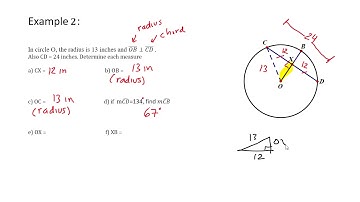 Example 2:
radius
chord
In circle O, the radius is 13 inches and OB ⊥ CD.
Also CD = 24 inches. Determine each measure
a) CX = 12 in
b) OB = 13 in
(radius)
c) OC = 13 in
(radius)
d) if mCD=134°, find mCB
67°
e) OX =
f) XB =
24
C
B
12
13
12
O
D
13
OX
12